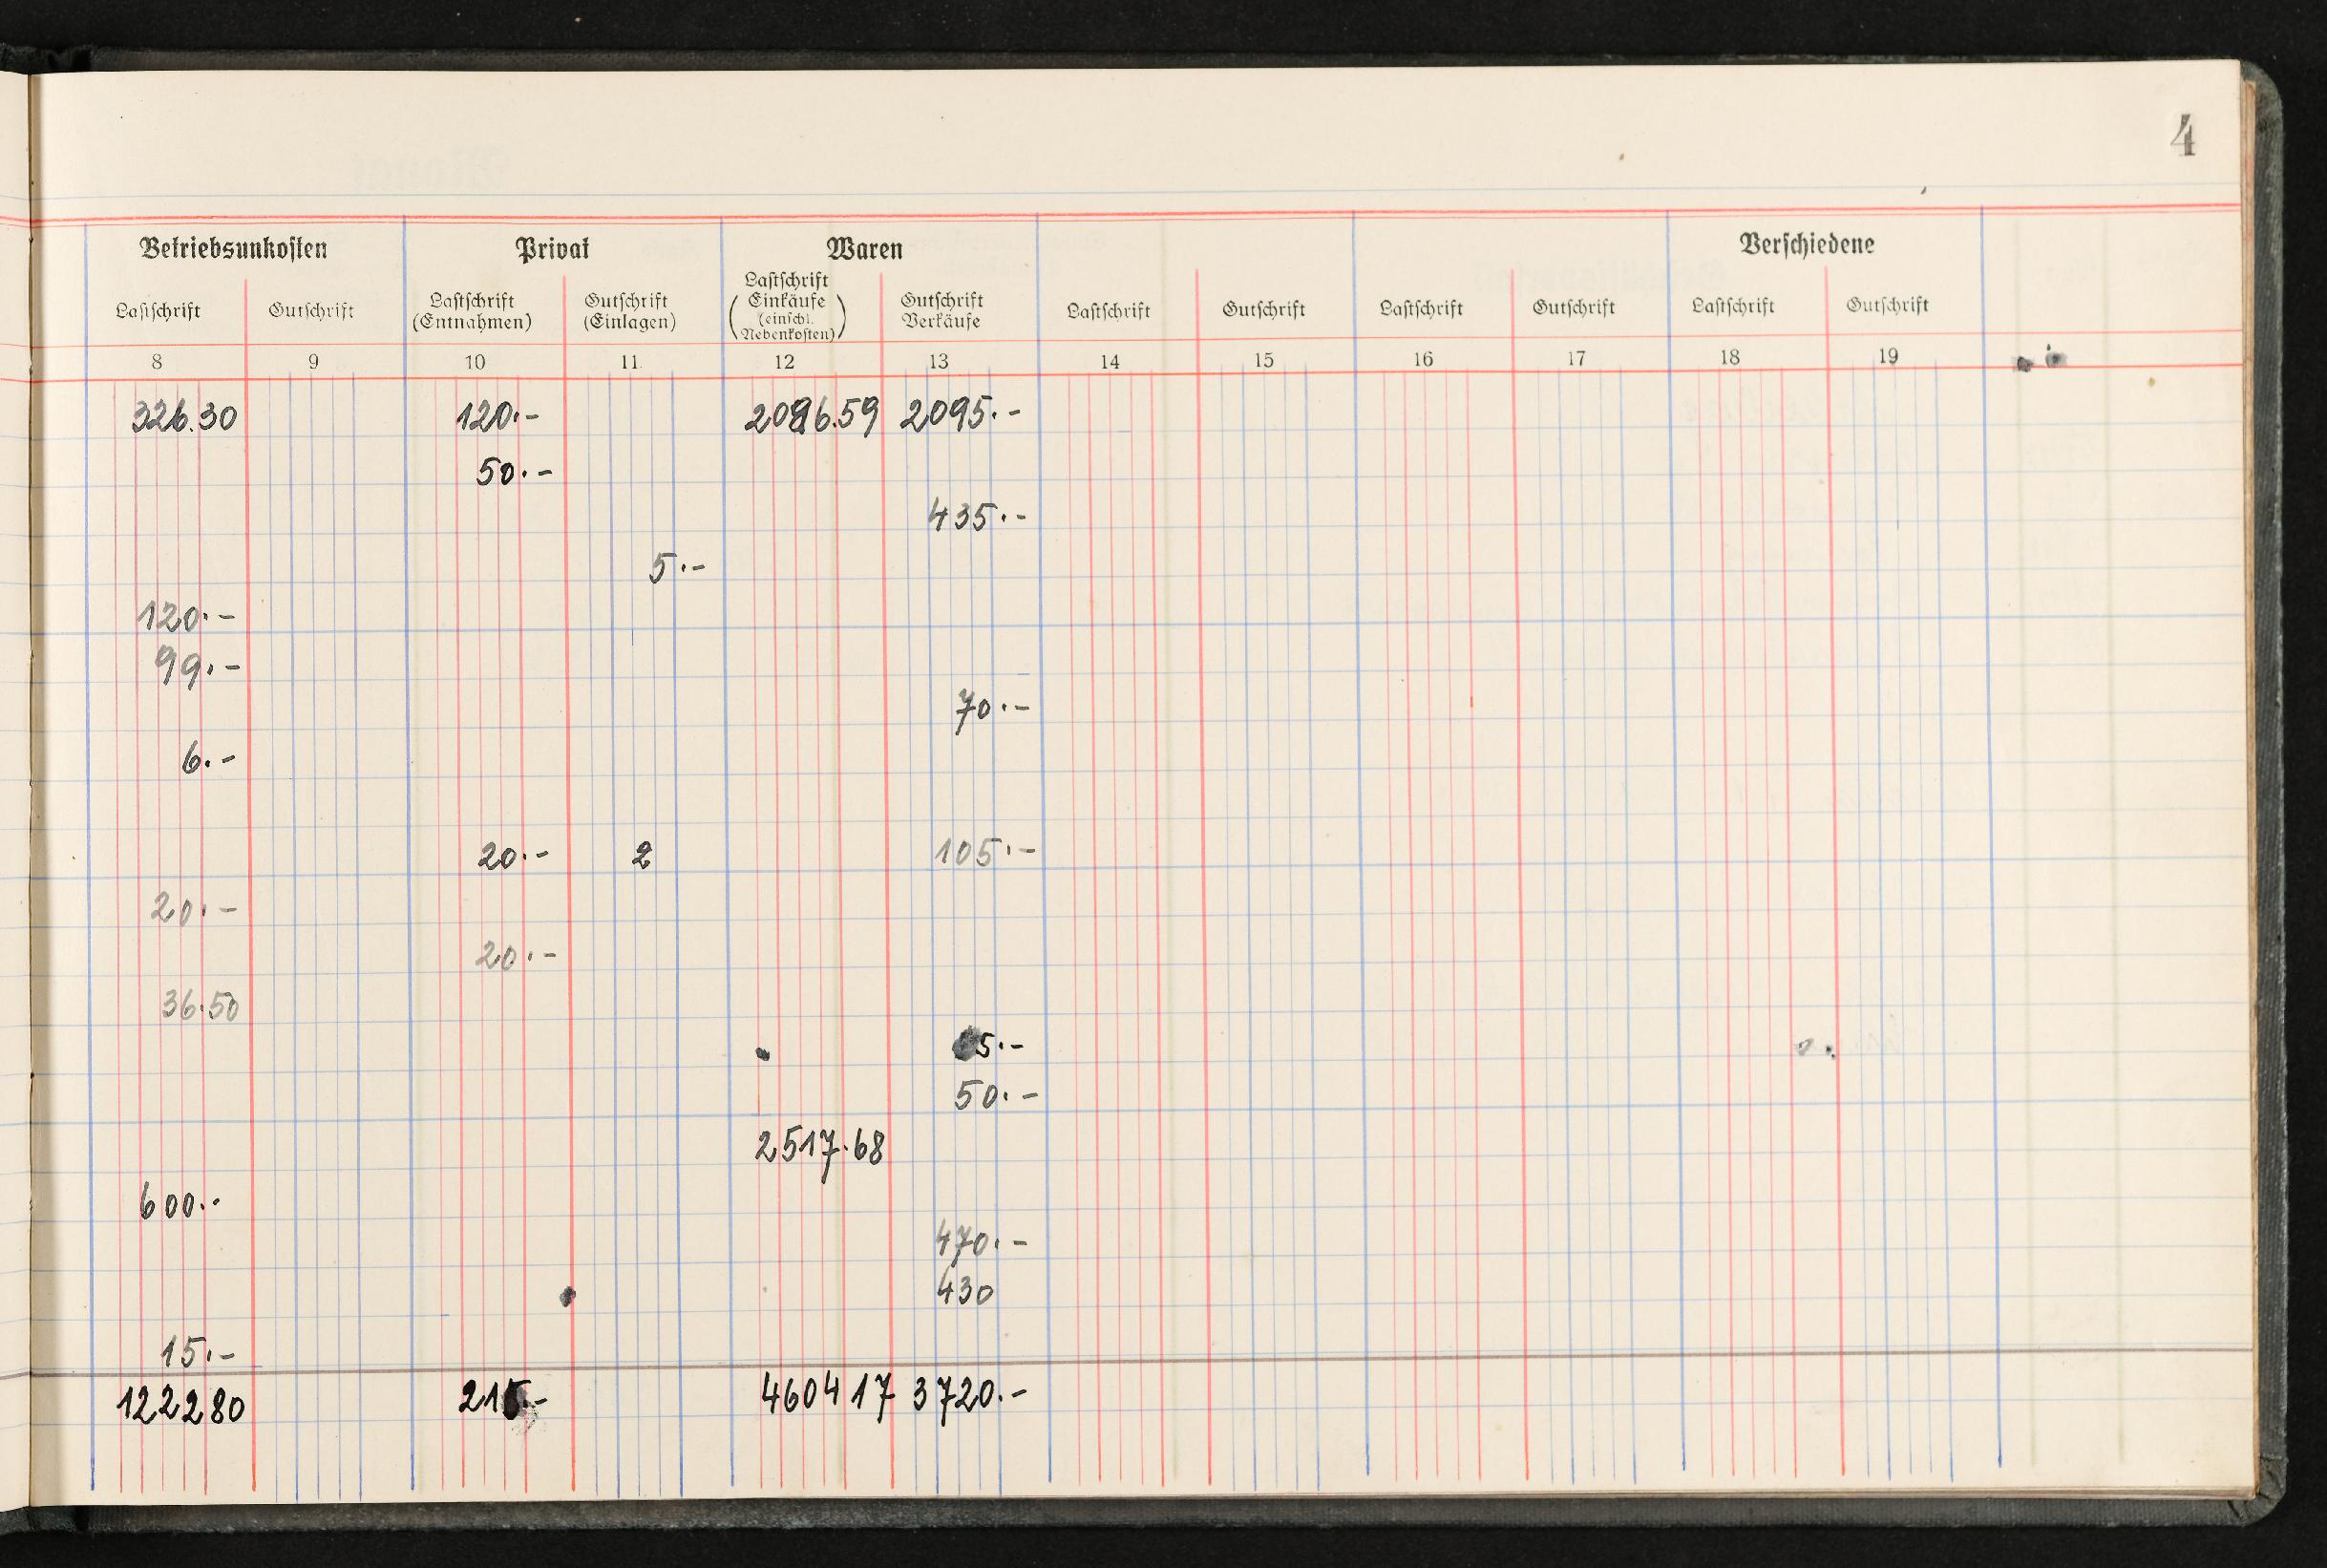 4
Betriebsunkosten Privat Waren Verschiedene
Lastschrift Gutschrift Lastschrift (Entnahmen) Gutschrift (Einlagen) Lastschrift (Einkäufe (einschl. Nebenkosten)) Gutschrift Verkäufe Lastschrift Gutschrift Lastschrift Gutschrift Lastschrift Gutschrift
8 9 10 11 12 13 14 15 16 17 18 19
326.30 120.- 2095.-
50.-
435.-
5.-
120.-
99.-
70.-
6.-
20.- 2 105.-
20.-
20.-
36.50
50.-
2517.68
600.-
470.-
430
15.-
122280 460417 3720.-